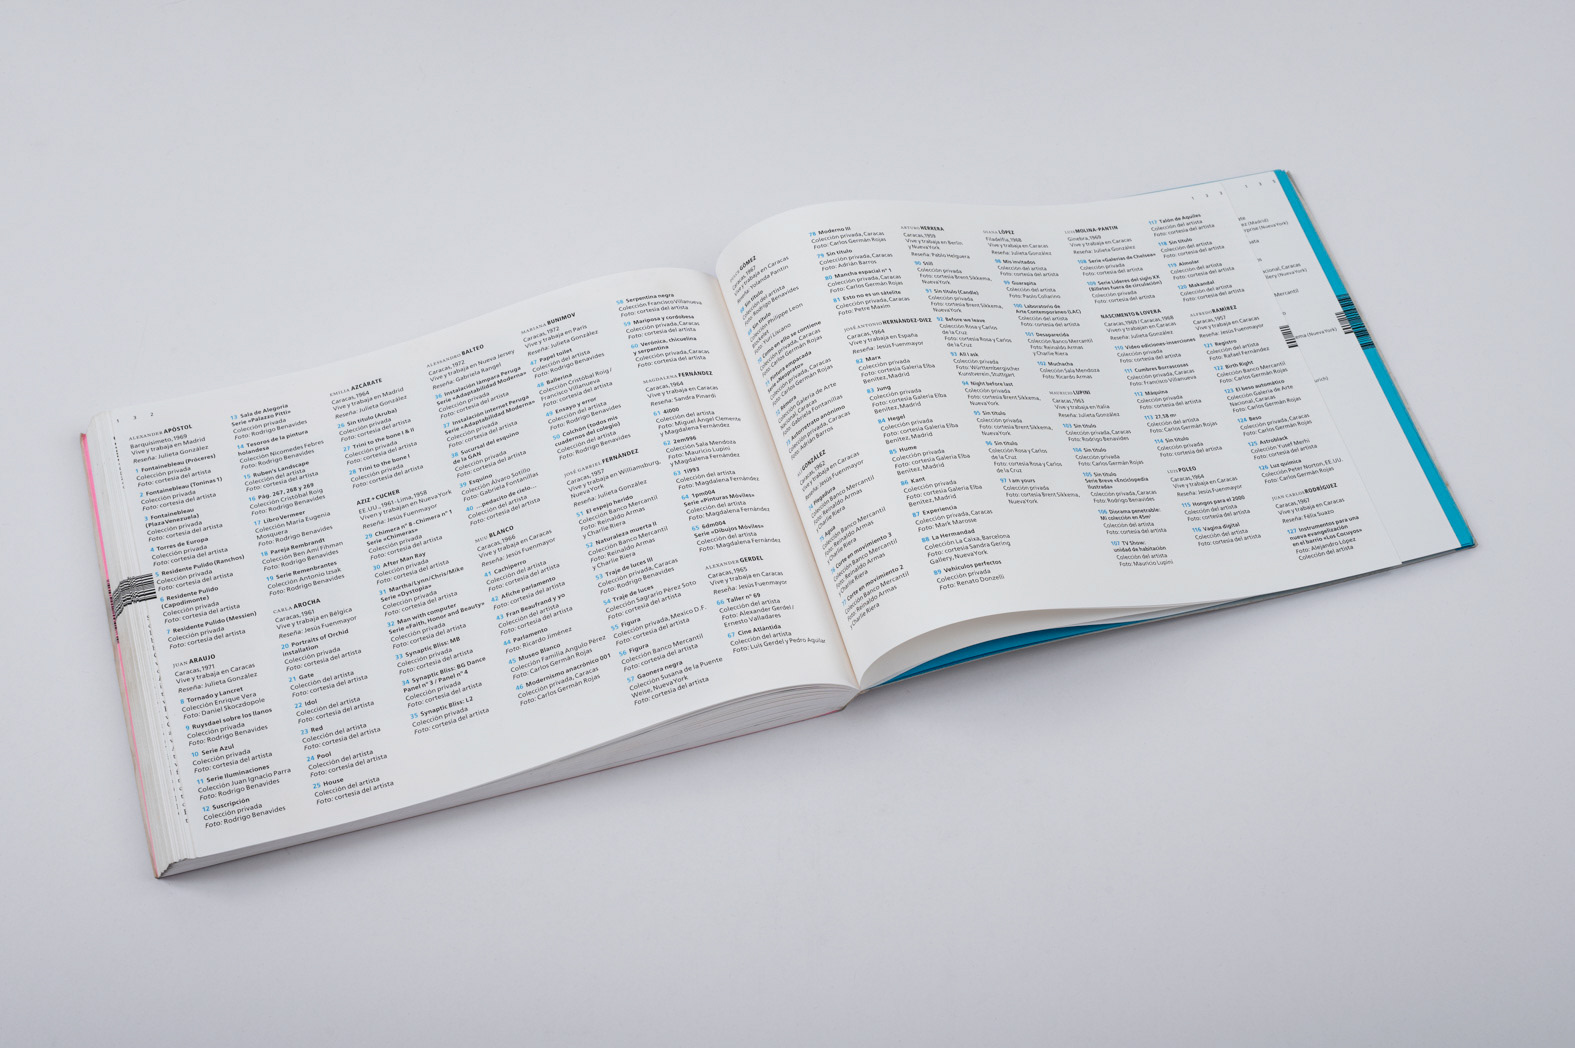 1 3 2
ALEXANDER APÓSTOL
Barquisimeto, 1969
Vive y trabaja en Madrid
Reseña: Julieta González
1 Fontainebleau (Próceres)
Colección privada
Foto: cortesía del artista
2 Fontainebleau (Toninas 1)
Colección privada
Foto: cortesía del artista
3 Fontainebleau
(Plaza Venezuela)
Colección privada
Foto: cortesía del artista
4 Torres de Europa
Colección privada
Foto: cortesía del artista
5 Residente Pulido (Ranchos)
Colección privada
Foto: cortesía del artista
6 Residente Pulido
(Capodimonte)
Colección privada
Foto: cortesía del artista
7 Residente Pulido (Messien)
Colección privada
Foto: cortesía del artista
JUAN ARAUJO
Caracas, 1971
Vive y trabaja en Caracas
Reseña: Julieta González
8 Tornado y Lancret
Colección Enrique Vera
Foto: Daniel Skoczdopole
9 Ruysdael sobre los llanos
Colección privada
Foto: Rodrigo Benavides
10 Serie Azul
Colección privada
Foto: cortesía del artista
11 Serie Iluminaciones
Colección Juan Ignacio Parra
Foto: Rodrigo Benavides
12 Suscripción
Colección privada
Foto: Rodrigo Benavides
13 Sala de Alegoría
Serie «Palazzo Pitti»
Colección privada
Foto: Rodrigo Benavides
14 Tesoros de la pintura
holandesa
Colección Nicomedes Febres
Foto: Rodrigo Benavides
15 Ruben's Landscape
Colección del artista
Foto: cortesía del artista
16 Pág. 267, 268 y 269
Colección Cristóbal Roig
Foto: Rodrigo Benavides
17 Libro Vermeer
Colección María Eugenia
Mosquera
Foto: Rodrigo Benavides
18 Pareja Rembrandt
Colección Ben Amí Fihman
Foto: Rodrigo Benavides
19 Serie Remenbrantes
Colección Antonio Izsak
Foto: Rodrigo Benavides
CARLA AROCHA
Caracas, 1961
Vive y trabaja en Bélgica
Reseña: Jesús Fuenmayor
20 Portraits of Orchid
installation
Colección privada
Foto: cortesía del artista
21 Gate
Colección del artista
Foto: cortesía del artista
22 Idol
Colección del artista
Foto: cortesía del artista
23 Red
Colección del artista
Foto: cortesía del artista
24 Pool
Colección del artista
Foto: cortesía del artista
25 House
Colección del artista
Foto: cortesía del artista
EMILIA AZCÁRATE
Caracas, 1964
Vive y trabaja en Madrid
Reseña: Julieta González
26 Sin título (Aruba)
Colección del artista
Foto: cortesía del artista
27 Trini to the bone I & II
Colección del artista
Foto: cortesía del artista
28 Trini to the bone I
Colección privada
Foto: cortesía del artista
AZIZ + CUCHER
EE.UU., 1961 - Lima, 1958
Viven y trabajan en Nueva York
Reseña: Jesús Fuenmayor
29 Chimera n° 8 - Chimera n° 1
Serie «Chimeras»
Colección privada
Foto: cortesía del artista
30 After Man Ray
Colección privada
Foto: cortesía del artista
31 Martha/Lynn/Chris/Mike
Serie «Dystopia»
Colección privada
Foto: cortesía del artista
32 Man with computer
Serie «Faith, Honor and Beauty»
Colección privada
Foto: cortesía del artista
33 Synaptic Bliss: MB
Colección privada
Foto: cortesía del artista
34 Synaptic Bliss: BG Dance
Panel n° 3 / Panel n° 4
Colección privada
Foto: cortesía del artista
35 Synaptic Bliss: L2
Colección privada
Foto: cortesía del artista
ALESSANDRO BALTEO
Caracas, 1972
Vive y trabaja en Nueva Jersey
Reseña: Gabriela Rangel
36 Instalación lámpara Peruga
Serie «Adaptabilidad Moderna»
Colección privada
Foto: cortesía del artista
37 Instalación internet Peruga
Serie «Adaptabilidad Moderna»
Colección privada
Foto: cortesía del artista
38 Sucursal del esquimo
de la GAN
Colección privada
Foto: cortesía del artista
39 Esquimo
Colección Álvaro Sotillo
Foto: Gabriela Fontanillas
40 ... pedacito de cielo...
Colección del artista
Foto: cortesía del artista
SIGU BLANCO
Caracas, 1966
Vive y trabaja en Caracas
Reseña: Jesús Fuenmayor
41 Cachiporro
Colección del artista
Foto: cortesía del artista
42 Afiche parlamento
Colección del artista
Foto: cortesía del artista
43 Fran Beaufrand y yo
Colección del artista
Foto: cortesía del artista
44 Parlamento
Colección del artista
Foto: Ricardo Jiménez
45 Museo Blanco
Colección Familia Angulo Pérez
Foto: Carlos Germán Rojas
46 Modernismo anacrónico 001
Colección privada, Caracas
Foto: Carlos Germán Rojas
MARIANA BUNIMOV
Caracas, 1972
Vive y trabaja en París
Reseña: Julieta González
47 Papel toilet
Colección del artista
Foto: Rodrigo Benavides
48 Ballerina
Colección Cristóbal Roig /
Francisco Villanueva
Foto: cortesía del artista
49 Ensayo y error
Colección del artista
Foto: Rodrigo Benavides
50 Colchón (todos mis
cuadernos del colegio)
Colección del artista
Foto: Rodrigo Benavides
JOSÉ GABRIEL FERNÁNDEZ
Caracas, 1957
Vive y trabaja en Williamsburg,
Nueva York
Reseña: Julieta González
51 El espejo herido
Colección Banco Mercantil
Foto: Reinaldo Armas
y Charlie Riera
52 Naturaleza muerta II
Colección Banco Mercantil
Foto: Reinaldo Armas
y Charlie Riera
53 Traje de luces III
Colección privada
Foto: Rodrigo Benavides
54 Traje de luces
Colección Sagrario Pérez Soto
Foto: cortesía del artista
55 Figura
Colección privada, Mexico D.F.
Foto: cortesía del artista
56 Figura
Colección Banco Mercantil
Foto: cortesía del artista
57 Gaonera negra
Colección Susana de la Puente
Weise, Nueva York
Foto: cortesía del artista
58 Serpentina negra
Colección Francisco Villanueva
Foto: cortesía del artista
59 Mariposa y cordobesa
Colección privada, Caracas
Foto: cortesía del artista
60 Verónica, chicuelina
y serpentina
Colección privada, Caracas
Foto: cortesía del artista
MAGDALENA FERNÁNDEZ
Caracas, 1964
Vive y trabaja en Caracas
Reseña: Sandra Pinardi
61 4i000
Colección del artista
Foto: Miguel Ángel Clemente
y Magdalena Fernández
62 2em996
Colección Sala Mendoza
Foto: Mauricio Lupini
y Magdalena Fernández
63 1i993
Colección del artista
Foto: Magdalena Fernández
64 1pm004
Serie «Pinturas Móviles»
Colección del artista
Foto: Magdalena Fernández
65 6dm004
Serie «Dibujos Móviles»
Colección del artista
Foto: Magdalena Fernández
ALEXANDER GERDEL
Caracas, 1965
Vive y trabaja en Caracas
Reseña: Jesús Fuenmayor
66 Taller n° 69
Colección del artista
Foto: Alexander Gerdel /
Ernesto Valladares
67 Cine Atlántida
Colección del artista
Foto: Luis Gerdel y Pedro Aguilar
GÓMEZ
Caracas, 1967
Vive y trabaja en Caracas
Reseña: Yolanda Pantin
Sin título
Colección del artista
Foto: Rodrigo Benavides
Sin título
Colección Philippe Leon
Foto: Yuri Liscano
Como en ello se contiene
Colección privada, Caracas
Foto: Carlos Germán Rojas
Pintura empacada
Colección privada, Caracas
Colección Galería de Arte
Nacional, Caracas
Foto: Gabriela Fontanillas
Autorretrato anónimo
Colección privada, Caracas
Foto: Adrián Barros
GONZÁLEZ
Caracas, 1962
Vive y trabaja en Caracas
Reseña: Jesús Fuenmayor
Colección Banco Mercantil
Foto: Reinaldo Armas
y Charlie Riera
75 Agua
Colección Banco Mercantil
Foto: Reinaldo Armas
y Charlie Riera
76 Corte en movimiento 3
Colección Banco Mercantil
Foto: Reinaldo Armas
y Charlie Riera
77 Corte en movimiento 2
Colección Banco Mercantil
Foto: Reinaldo Armas
y Charlie Riera
78 Moderno III
Colección privada, Caracas
Foto: Carlos Germán Rojas
79 Sin título
Colección privada, Caracas
Foto: Adrián Barros
80 Mancha espacial n° 1
Colección privada, Caracas
Foto: Carlos Germán Rojas
81 Esto no es un satélite
Colección privada, Caracas
Foto: Petre Maxim
JOSÉ ANTONIO HERNÁNDEZ-DIEZ
Caracas, 1964
Vive y trabaja en España
Reseña: Jesús Fuenmayor
82 Marx
Colección privada
Foto: cortesía Galería Elba
Benítez, Madrid
83 Jung
Colección privada
Foto: cortesía Galería Elba
Benítez, Madrid
84 Hegel
Colección privada
Foto: cortesía Galería Elba
Benítez, Madrid
85 Hume
Colección privada
Foto: cortesía Galería Elba
Benítez, Madrid
86 Kant
Colección privada
Foto: cortesía Galería Elba
Benítez, Madrid
87 Experiencia
Colección privada, Caracas
Foto: Mark Marosse
88 La Hermandad
Colección La Caixa, Barcelona
Foto: cortesía Sandra Gering
Gallery, Nueva York
89 Vehículos perfectos
Colección privada
Foto: Renato Donzelli
ARTURO HERRERA
Caracas, 1959
Vive y trabaja en Berlín
y Nueva York
Reseña: Pablo Helguera
90 Still
Colección privada
Foto: cortesía Brent Sikkema,
Nueva York
91 Sin título (Candle)
Colección privada
Foto: cortesía Brent Sikkema,
Nueva York
92 Before we leave
Colección Rosa y Carlos
de la Cruz
Foto: cortesía Rosa y Carlos
de la Cruz
93 All I ask
Colección privada
Foto: cortesía Württembergischer
Kunstverein, Stuttgart
94 Night before last
Colección privada
Foto: cortesía Brent Sikkema,
Nueva York
95 Sin título
Colección privada
Foto: cortesía Brent Sikkema,
Nueva York
96 Sin título
Colección privada
Foto: cortesía Rosa y Carlos
de la Cruz
97 I am yours
Colección privada
Foto: cortesía Brent Sikkema,
Nueva York
DIANA LÓPEZ
Filadelfia, 1968
Vive y trabaja en Caracas
Reseña: Julieta González
98 Mis invitados
Colección del artista
Foto: cortesía del artista
99 Guarapita
Colección del artista
Foto: Paolo Collarino
100 Laboratorio de
Arte Contemporáneo (LAC)
Colección del artista
Foto: cortesía del artista
101 Desaparecida
Colección Banco Mercantil
Foto: Reinaldo Armas
y Charlie Riera
102 Muchacha
Colección Sala Mendoza
Foto: Ricardo Armas
MAURICIO LUPINI
Caracas, 1963
Vive y trabaja en Italia
Reseña: Julieta González
103 Sin título
Colección privada, Caracas
Foto: Rodrigo Benavides
104 Sin título
Colección privada, Caracas
Foto: Rodrigo Benavides
105 Sin título
Serie Breve «Enciclopedia
Ilustrada»
Colección privada, Caracas
Foto: Rodrigo Benavides
106 Diorama penetrable:
Mi colección en 45m²
Colección del artista
Foto: cortesía del artista
107 TV Show:
unidad de habitación
Colección del artista
Foto: Mauricio Lupini
LUIS MOLINA-PANTIN
Ginebra, 1969
Vive y trabaja en Caracas
Reseña: Julieta González
108 Serie «Galerías de Chelsea»
Colección privada
Foto: cortesía del artista
109 Serie Líderes del siglo XX
(Billetes fuera de circulación)
Colección privada
Foto: cortesía del artista
NASCIMENTO & LOVERA
Caracas, 1969 / Caracas, 1968
Viven y trabajan en Caracas
Reseña: Julieta González
110 Video ediciones-inserciones
Colección privada
Foto: cortesía del artista
111 Cumbres Borrascosas
Colección privada
Foto: Francisco Villanueva
112 Máquina
Colección privada
Foto: cortesía del artista
113 27,58 m²
Colección del artista
Foto: cortesía del artista
114 Sin título
Colección privada
Foto: Carlos Germán Rojas
LUIS POLEO
Caracas, 1964
Vive y trabaja en Caracas
Reseña: Jesús Fuenmayor
115 Hongos para el 2000
Colección del artista
Foto: cortesía del artista
116 Vagina digital
Colección del artista
Foto: cortesía del artista
1 3 3
117 Talón de Aquiles
Colección del artista
Foto: cortesía del artista
118 Sin título
Colección del artista
Foto: cortesía del artista
119 Amolar
Colección del artista
Foto: cortesía del artista
120 Makandal
Colección del artista
Foto: cortesía del artista
ALFREDO RAMÍREZ
Caracas, 1957
Vive y trabaja en Caracas
Reseña: Jesús Fuenmayor
121 Registro
Colección del artista
Foto: Rafael Fernández
122 Birth Right
Colección Banco Mercantil
Foto: Carlos Germán Rojas
123 El beso automático
Colección Galería de Arte
Nacional, Caracas
Foto: Carlos Germán Rojas
124 Beso
Colección privada, Caracas
Foto: Carlos Germán Rojas
125 Astroblack
Colección Yusef Merhi
Foto: cortesía del artista
126 Luz química
Colección Peter Norton, EE.UU.
Foto: Carlos Germán Rojas
JUAN CARLOS RODRÍGUEZ
Caracas, 1967
Vive y trabaja en Caracas
Reseña: Félix Suazo
127 Instrumentos para una
nueva evangelización
en el barrio «Los Cocuyos»
Foto: Alejandro López
Colección del artista
1 3 5
(Madrid)
(Nueva York)
Caracas
Nueva York)
Mercantil
(Nueva York)